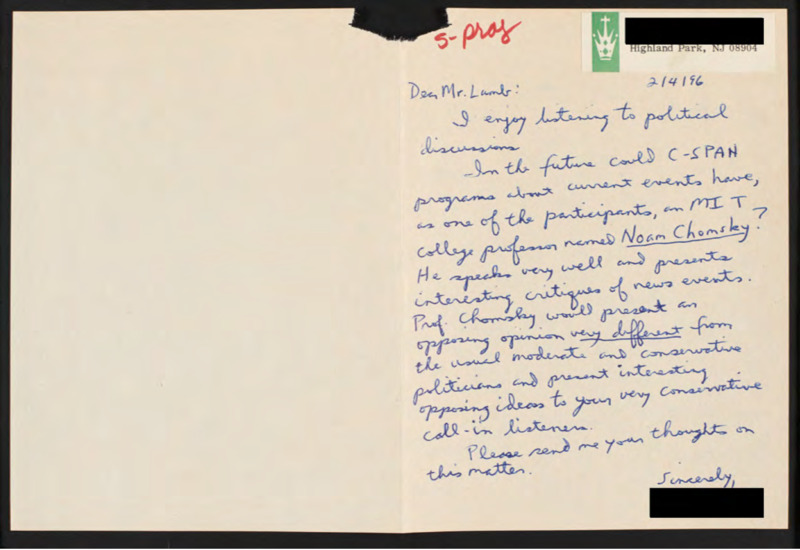 s-prog
Highland Park, NJ 08904
2/4/96
Dear Mr. Lamb:
I enjoy listening to political
discussions
-In the future could C-SPAN
programs about current events have,
as one of the participants, an MIT
college professor named Noam Chomsky?
He speaks very well and presents
interesting critiques of news events.
Prof. Chomsky would present an
opposing opinion very different from
the usual moderate and conservative
politicians and present interesting
opposing ideas to your very conservative
call-in listeners.
Please send me your thoughts on
this matter.
Sincerely,